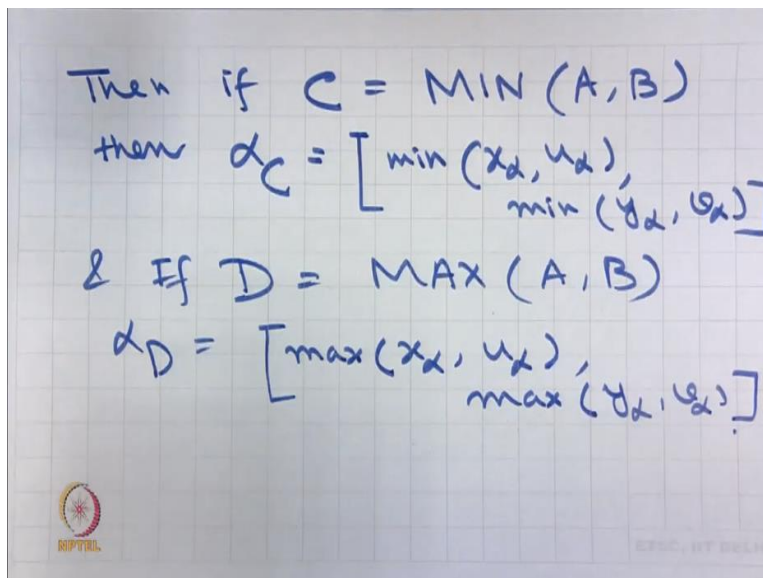 Then if C = MIN (A, B)
then α_C = [min (x_α, u_α),
min (y_α, v_α)]
& If D = MAX (A, B)
α_D = [max (x_α, u_α),
max (y_α, v_α)]
NPTEL
ETSC, IIT DELHI